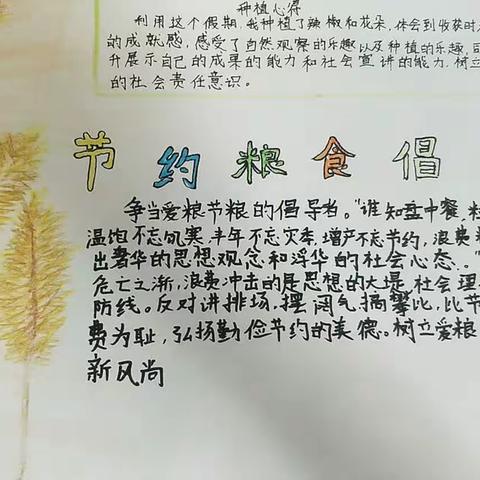 种植心得
利用这个假期,我种植了辣椒和花朵,体会到收获时
的成就感,感受了自然观察的乐趣以及种植的乐趣,
升展示自己的成果的能力和社会宣讲的能力,树立
的社会责任意识。
节约粮食倡
争当爱粮节粮的倡导者。"谁知盘中餐,粒
温饱不忘饥寒,丰年不忘灾本,增产不忘节约,浪费
出奢华的思想观念和浮华的社会心态..."
危亡之渐,浪费冲击的是思想的大堤,社会理
防线。反对讲排场,摆阔气,搞攀比,比节
费为耻,弘扬勤俭节约的美德。树立爱粮
新风尚